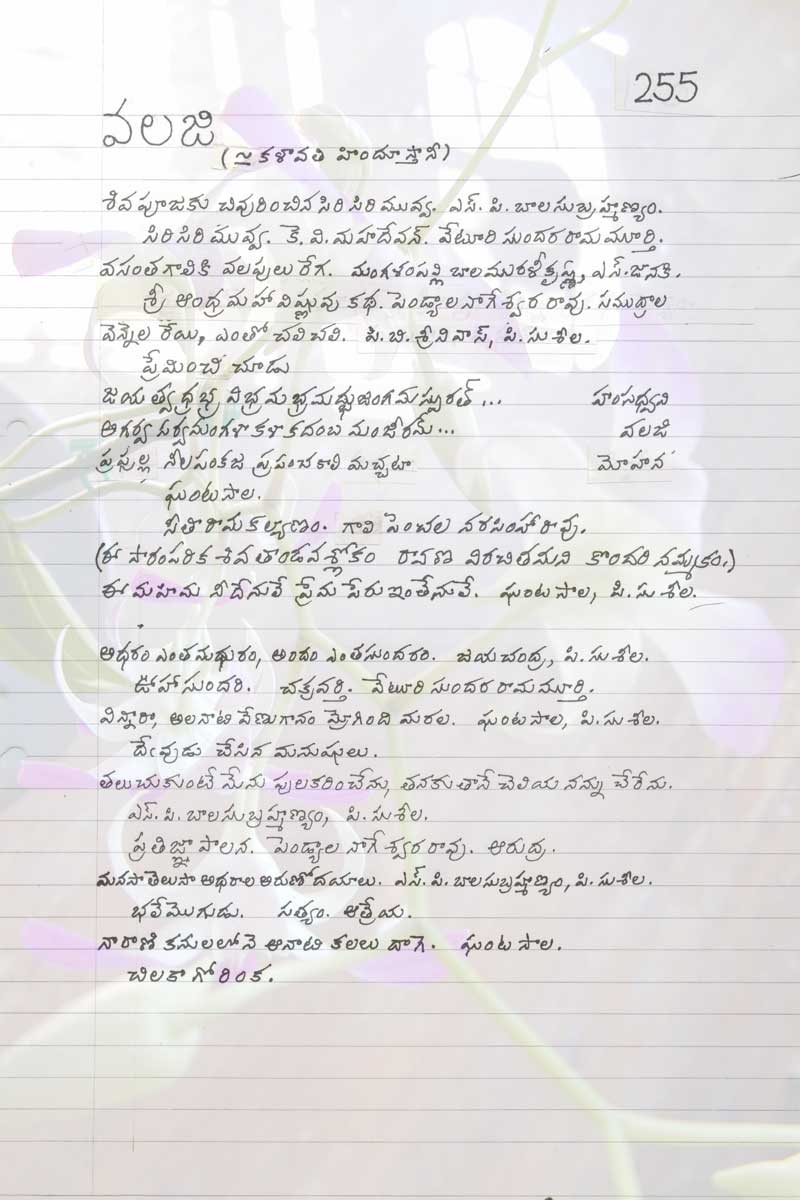 255
వలజి
(~ కళావతి హిందూస్తానీ)
శివ పూజకు చివురించిన సిరి సిరి మువ్వ. ఎస్. పి. బాల సుబ్రహ్మణ్యం.
సిరి సిరి మువ్వ. కె. వి. మహదేవన్. వేటూరి సుందర రామ మూర్తి.
వసంత గాలికి వలపులు రేగ. మంగళంపల్లి బాలమురళీకృష్ణ, ఎస్. జానకి.
శ్రీ ఆంధ్ర మహా విష్ణువు కథ. పెండ్యాల నాగేశ్వర రావు. సముద్రాల
వెన్నెల రేయి, ఎంతో చలి చలి. పి. బి. శ్రీనివాస్, పి. సుశీల.
ప్రేమించి చూడు
జయ త్వదభ్ర విభ్రమ భ్రమద్భుజంగమస్ఫురత్ ... హంసధ్వని
అగర్వ సర్వమంగళా కళా కదంబ మంజరీమ్ ... వలజి
ప్రఫుల్ల నీలపంకజ ప్రపంచకాలి మచ్ఛటా మోహన
ఘంటసాల.
సీతారామ కల్యాణం. గాలి పెంచల నరసింహా రావు.
(ఈ సాంపరిక శివ తాండవ శ్లోకం రావణ విరచితమని కొందరి నమ్మకం.)
ఈ మహిమ నీదేనులే ప్రేమ పేరు ఇంతేనులే. ఘంటసాల, పి. సుశీల.
అధరం ఎంత మధురం, అందం ఎంత సుందరం. జయచంద్ర, పి. సుశీల.
ఊహా సుందరి. చక్రవర్తి. వేటూరి సుందర రామ మూర్తి.
విన్నారా, అలనాటి వేణుగానం మ్రోగింది మరల. ఘంటసాల, పి. సుశీల.
దేవుడు చేసిన మనుషులు.
తలుచుకుంటే మేను పులకరించేను, తనకు తానే చెలియ నన్ను చేరేను.
ఎస్. పి. బాలసుబ్రహ్మణ్యం, పి. సుశీల.
ప్రతిజ్ఞా పాలన. పెండ్యాల నాగేశ్వర రావు. ఆరుద్ర.
మనసా తెలుసా అధరాల అరుణోదయాలు. ఎస్. పి. బాలసుబ్రహ్మణ్యం, పి. సుశీల.
భలే మొగుడు. సత్యం. ఆత్రేయ.
నా రాణి కనులలోనె ఆనాటి కలలు దాగె. ఘంటసాల.
చిలకా గోరింక.